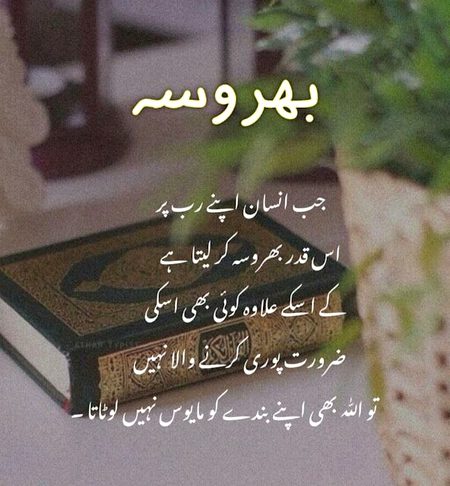 بھروسہ
جب انسان اپنے رب پر
اس قدر بھروسہ کر لیتا ہے
کے اسکے علاوہ کوئی بھی اسکی
ضرورت پوری کرنے والا نہیں
تو اللہ بھی اپنے بندے کو مایوس نہیں لوٹاتا ۔